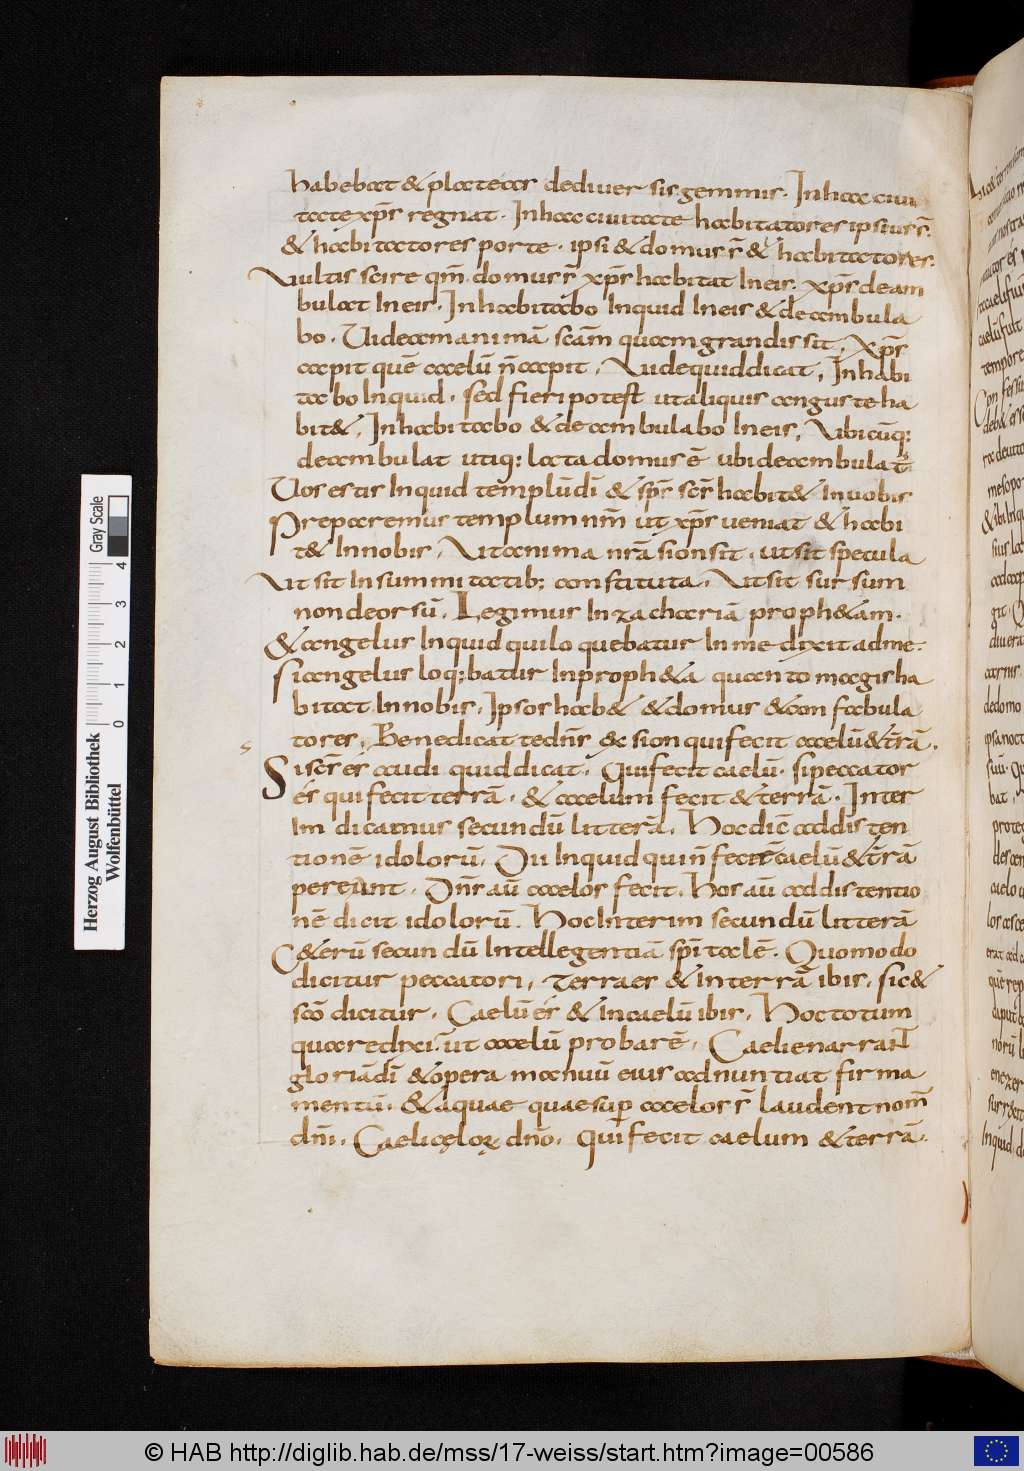 habebat & plateas dediuersis gemmis. In hac ciui
tate xp̄s regnat. In hac ciuitate habitatores ipsius s̄.
& habitatores porte. ipsi & domus s̄ & habitatores.
Uultis scire qm̄ domus s̄ xp̄s habitat In eis. xp̄s deam
bulat In eis. In habitabo Inquid In eis & deambula
bo. Uide animā scām quam grandis sit. xp̄s
capit quē caelū n̄ capit. Uide quid dicat. In habi
tabo Inquid. sed fieri potest ut aliquis anguste ha
bit&. In habitabo & deambulabo In eis. Ubicūq;
deambulat utiq; lata domus ē ubi deambulat s̄
Uos estis Inquid templū dī & sp̄s sc̄s habit& In uobis
Preparemus templum nm̄ ut xp̄s ueniat & habi
t& In nobis. Ut anima nrā sion sit. ut sit specula
Ut sit In summitatib; constituta. Ut sit sursum
non deorsū. Legimus In zachariā proph&am.
& angelus Inquid qui loquebatur In me dixit ad me.
si angelus loq;batur In proph&a quanto magis ha
bitat In nobis. Ipsos hab& & domus & confabula
tores. Benedicat te dn̄s ex sion qui fecit caelū & t̄rā.
Si sc̄s es audi quid dicat. Qui fecit caelū. si peccator
es qui fecit terrā. & caelum fecit & terrā. Inter
im dicamus secundū litterā. Hoc dic̄ ad disten
tionē idolorū. Dii Inquid qui n̄ fecer̄ caelū & t̄rā
pereunt. Dn̄s aū caelos fecit. Hos aū ad distentio
nē dicit idolorū. Hoc Interim secundū litterā
C&erū secundū Intellegentiā sp̄italē. Quomodo
dicitur peccatori. Terra es & In terrā ibis. sic &
scō dicitur. Caelū es & In caelū ibis. Hoc totum
quare dixi. ut caelū probarē. Caeli enarrant
gloriā dī & opera manuū eius adnuntiat firma
mentū. & aquae quae sup caelos s̄ laudent nom̄
dn̄i. Caeli cęlorꝝ dn̄o. Qui fecit caelum & terrā.
Herzog August Bibliothek
Wolfenbüttel
Gray Scale
0 1 2 3 4
© HAB http://diglib.hab.de/mss/17-weiss/start.htm?image=00586